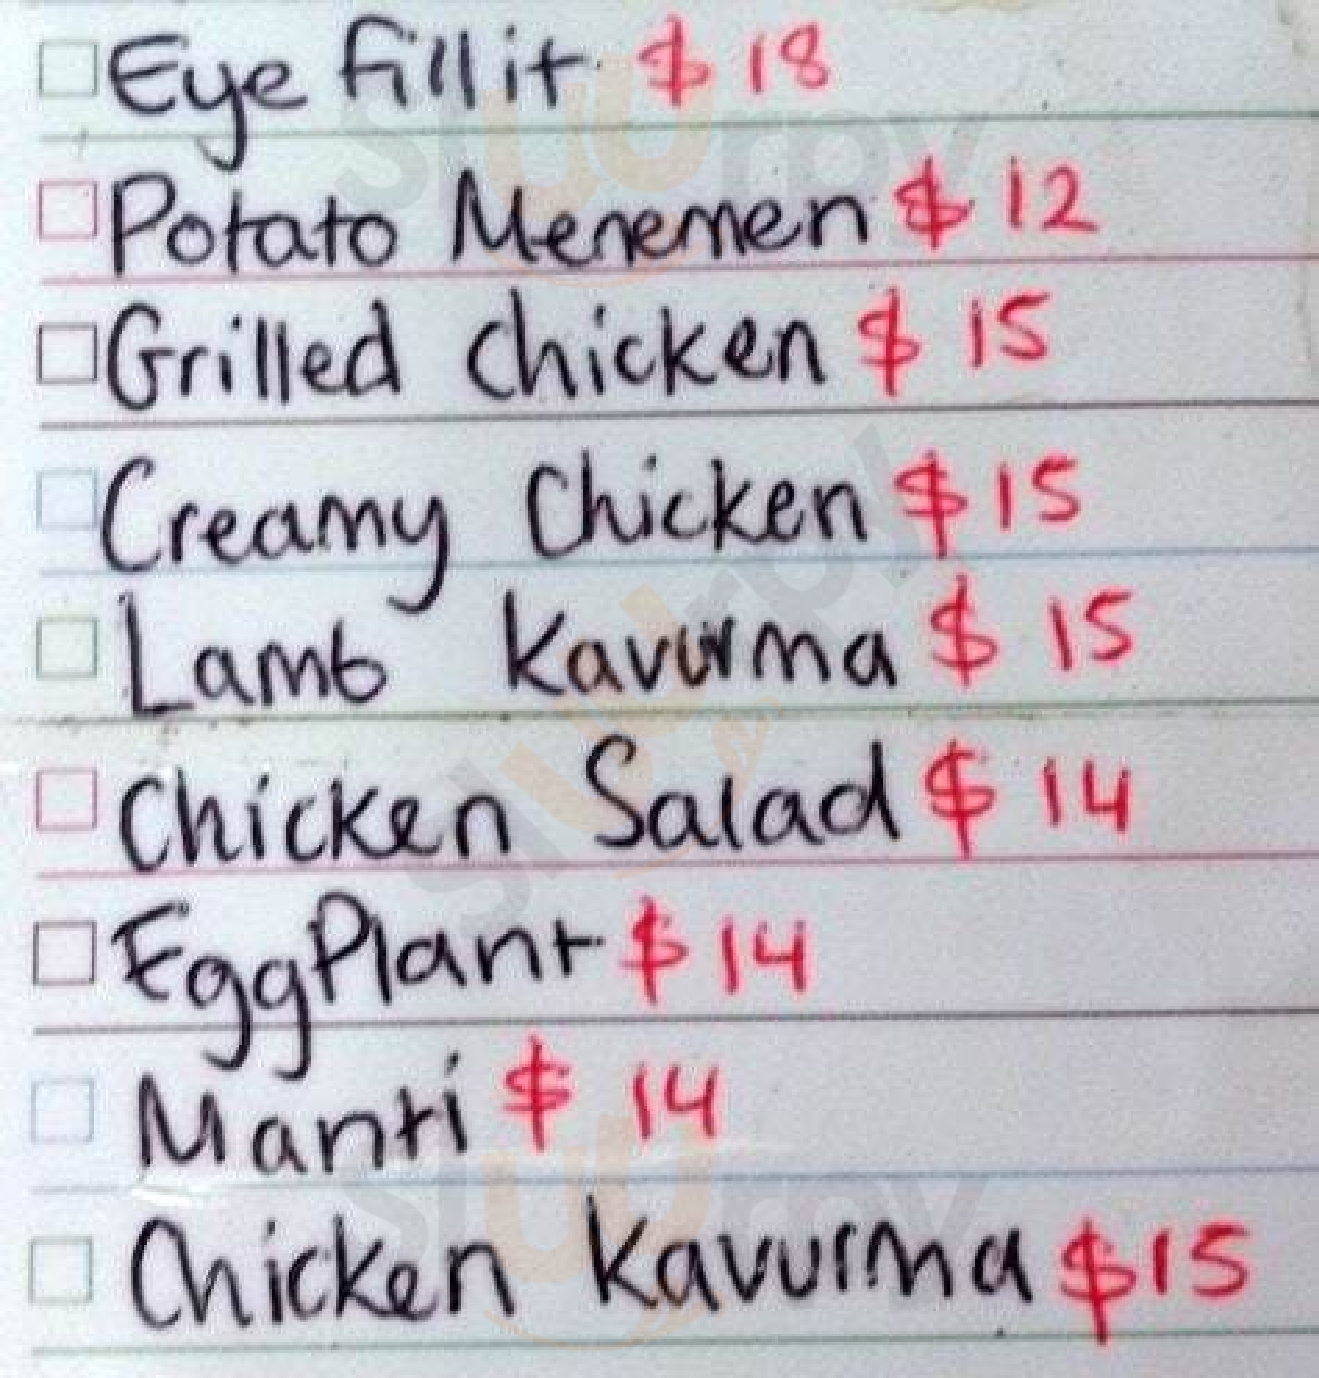 Eye fillit $18
Potato Menemen $12
Grilled chicken $15
Creamy Chicken $15
Lamb Kavurma $15
Chicken Salad $14
EggPlant $14
Manti $14
Chicken Kavurma $15
sluurpy
sluurpy
sluurpy